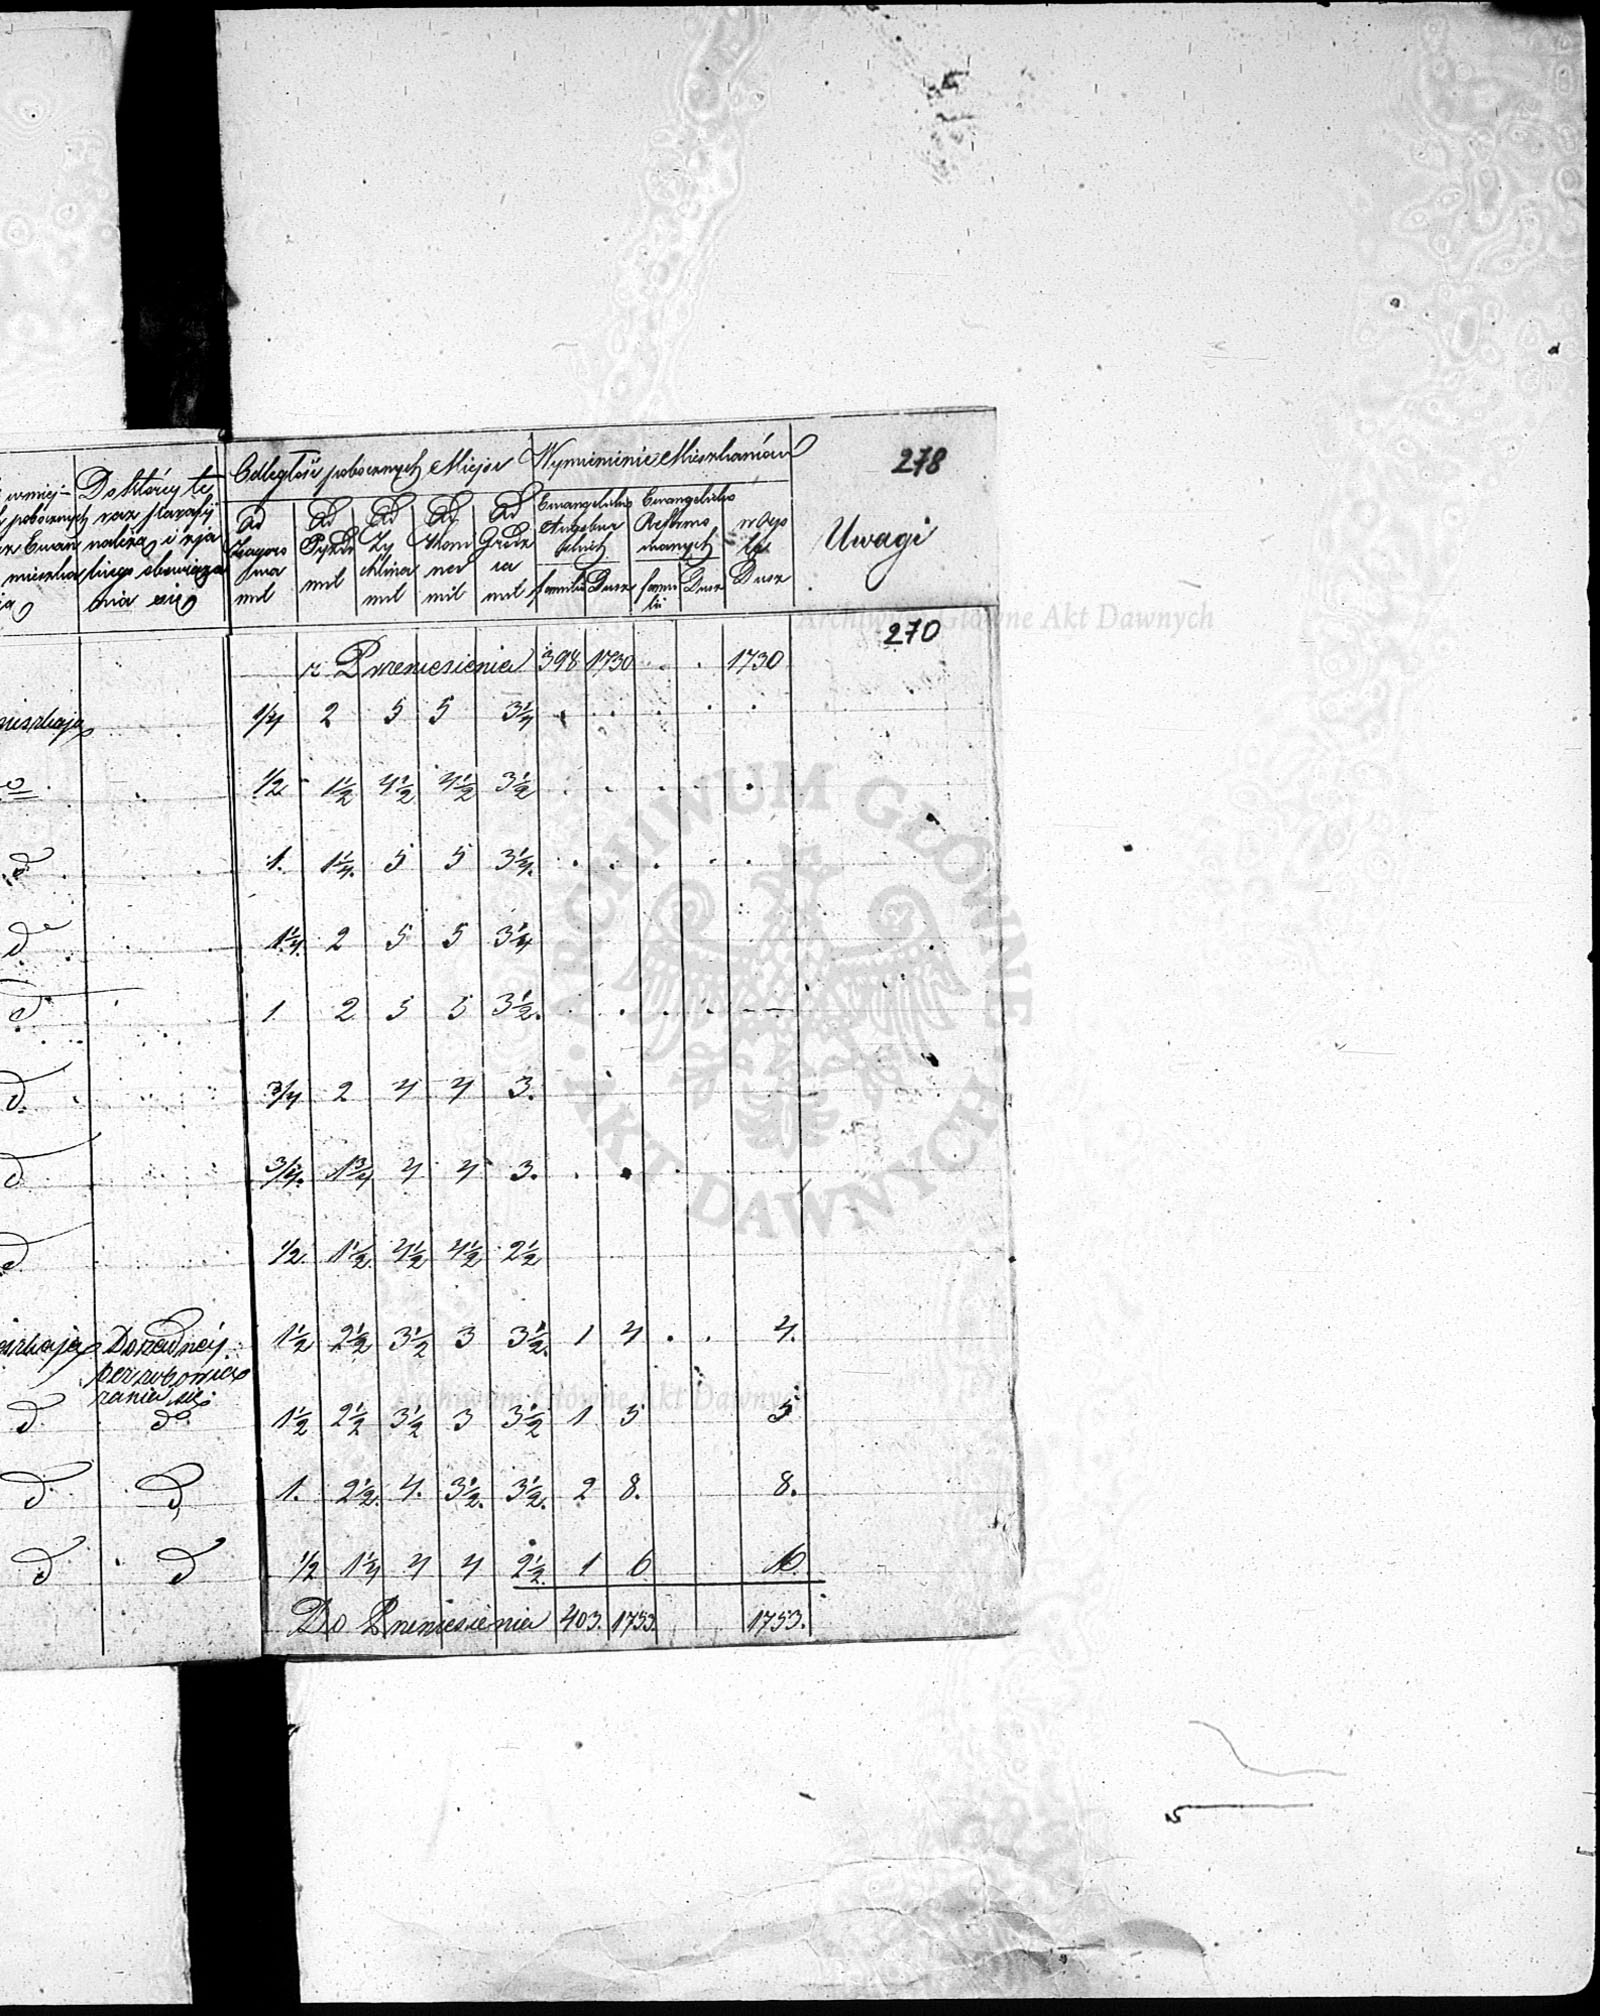 278
Odległość pobocznych Miejsc Wymienienie Mieszkańców
Do którey te
raz Parafij
należą i z ja
kiego obowiąza
nia się
pobocznych
Ewan
mieszka
Od Zagoro
wa
mil
Od
Pyzdr
mil
Od
Zy
chlina
mil
Od
Kon
mil
Od
Grodz
ca
mil
Ewangelików
Augsbur
skich
familii Dusz
Ewangelików
Reformo
wanych
fami
lii Dusz
w Ogó
le
Dusz
Uwagi
270
z Przeniesienia 398 1730 1730
mieszkają 1/4 2 5 5 3 1/4
1/2 1 1/2 4 1/2 4 1/2 3 1/2
d 1. 1 1/4. 5 5 3 1/4.
d 1 1/4. 2 5 5 3 1/4
d 1 2 5 5 3 1/2.
d 3/4 2 4 4 3.
d 3/4. 1 3/4 4 4 3.
d 1/2 1 1/2 4 1/2 4 1/2 2 1/2
Do żadnéy 1 1/2 2 1/2 3 1/2 3 3 1/2. 1 4 4.
bez zobowią
zania się
d d° 1 1/2 2 1/2 3 1/2 3 3 1/2 1 5 5
d d 1. 2 1/2. 4. 3 1/2. 3 1/2. 2 8. 8.
d d 1/2 1 1/4 4 4 2 1/2. 1 6
Do Przeniesienia 403. 1753. 1753.
Archiwum Główne Akt Dawnych
ARCHIWUM GŁÓWNE AKT DAWNYCH
Archiwum Główne Akt Dawnych